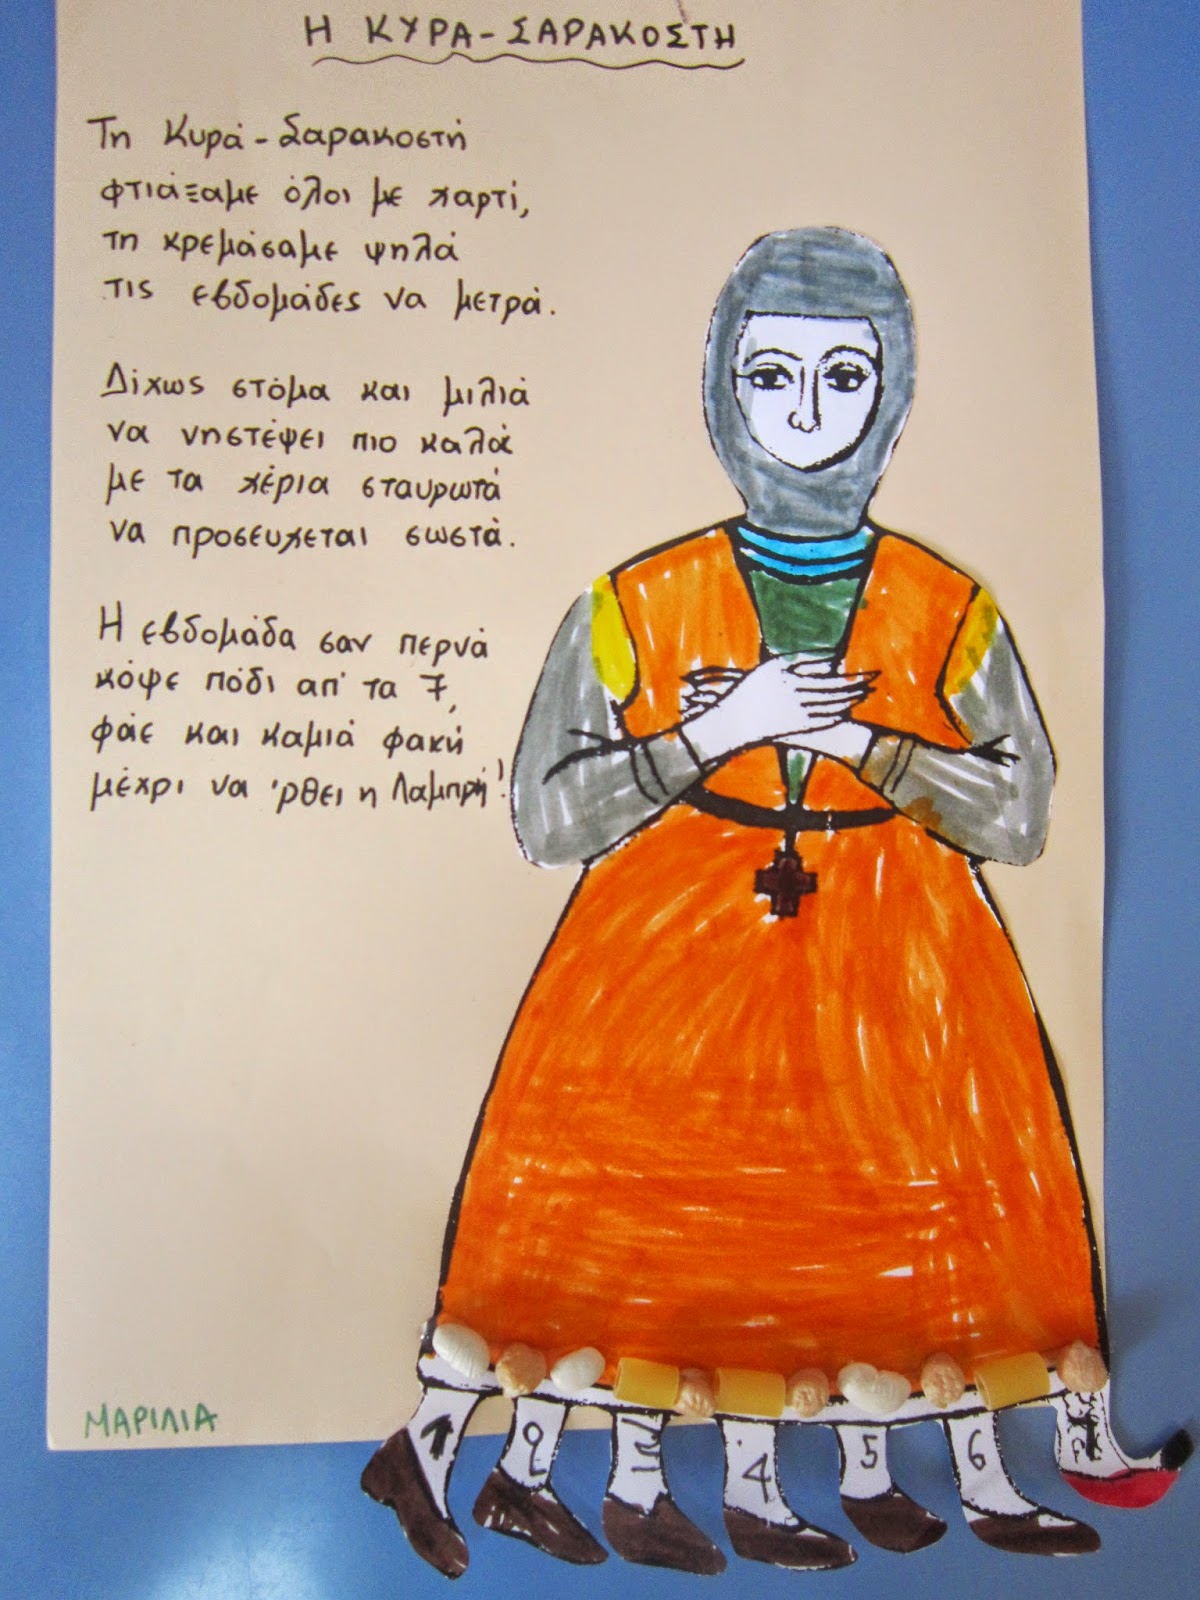 Η ΚΥΡΑ-ΣΑΡΑΚΟΣΤΗ
Τη Κυρά-Σαρακοστή
φτιάξαμε όλοι με χαρτί,
τη κρεμάσαμε ψηλά
τις εβδομάδες να μετρά.
Δίχως στόμα και μιλιά
να νηστέψει πιο καλά
με τα χέρια σταυρωτά
να προσευχεται σωστά.
Η εβδομάδα σαν περνά
κόψε πόδι απ' τα 7,
φάε και καμιά φακή
μέχρι να 'ρθει η Λαμπρή!
ΜΑΡΙΛΙΑ
1 2 3 4 5 6